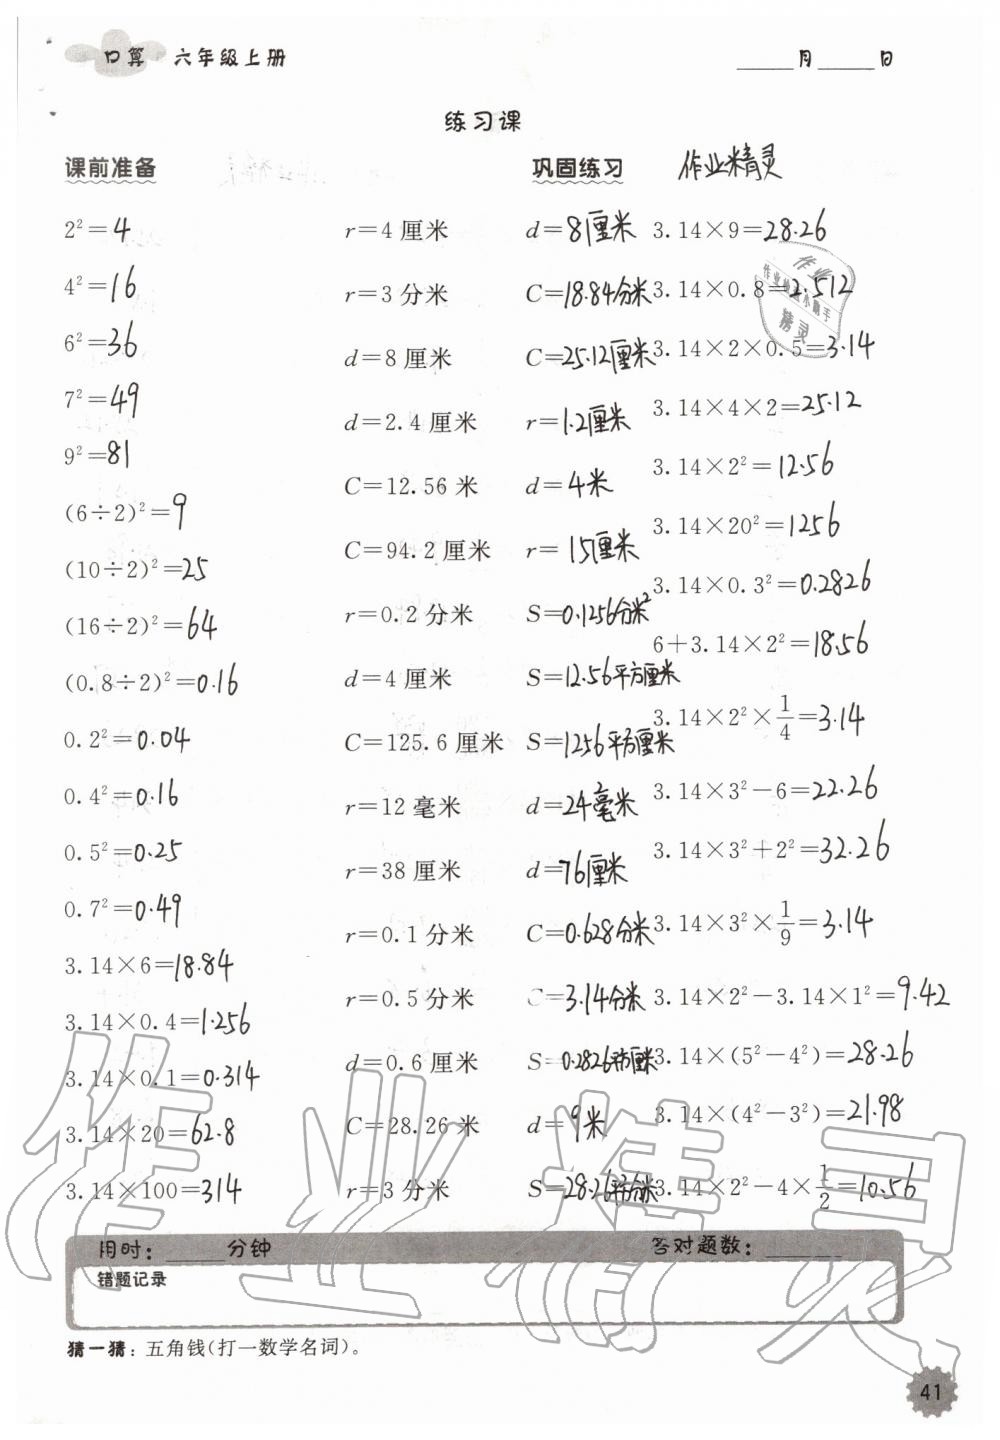 口算 六年级上册
____月____日
练习课
课前准备
2²=4
4²=16
6²=36
7²=49
9²=81
(6÷2)²=9
(10÷2)²=25
(16÷2)²=64
(0.8÷2)²=0.16
0.2²=0.04
0.4²=0.16
0.5²=0.25
0.7²=0.49
3.14×6=18.84
3.14×0.4=1.256
3.14×0.1=0.314
3.14×20=62.8
3.14×100=314
r=4厘米 d=8厘米
r=3分米 C=18.84分米
d=8厘米 C=25.12厘米
d=2.4厘米 r=1.2厘米
C=12.56米 d=4米
C=94.2厘米 r=15厘米
r=0.2分米 S=0.1256分米²
d=4厘米 S=12.56平方厘米
C=125.6厘米 S=1256平方厘米
r=12毫米 d=24毫米
r=38厘米 d=76厘米
r=0.1分米 C=0.628分米
r=0.5分米 C=3.14分米
d=0.6厘米 S=0.2826平方厘米
C=28.26米 d=9米
r=3分米 S=28.26平方分米
巩固练习 作业精灵
3.14×9=28.26
3.14×0.8=2.512
3.14×2×0.5=3.14
3.14×4×2=25.12
3.14×2²=12.56
3.14×20²=1256
3.14×0.3²=0.2826
6+3.14×2²=18.56
3.14×2²×1/4=3.14
3.14×3²-6=22.26
3.14×3²+2²=32.26
3.14×3²×1/9=3.14
3.14×2²-3.14×1²=9.42
3.14×(5²-4²)=28.26
3.14×(4²-3²)=21.98
3.14×2²-4×1/2=10.56
作业
精灵
作业精灵
用时：____分钟 答对题数：____
错题记录
猜一猜：五角钱(打一数学名词)。
41